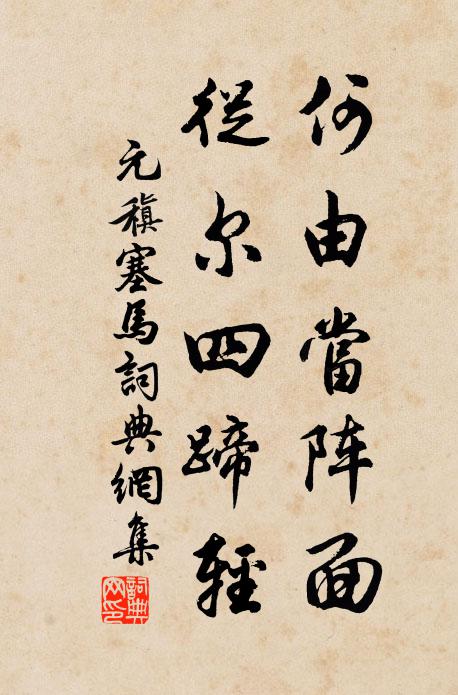 何由當阵面
從尔四蹄輕
元稹塞馬詞典網集
詞典网印